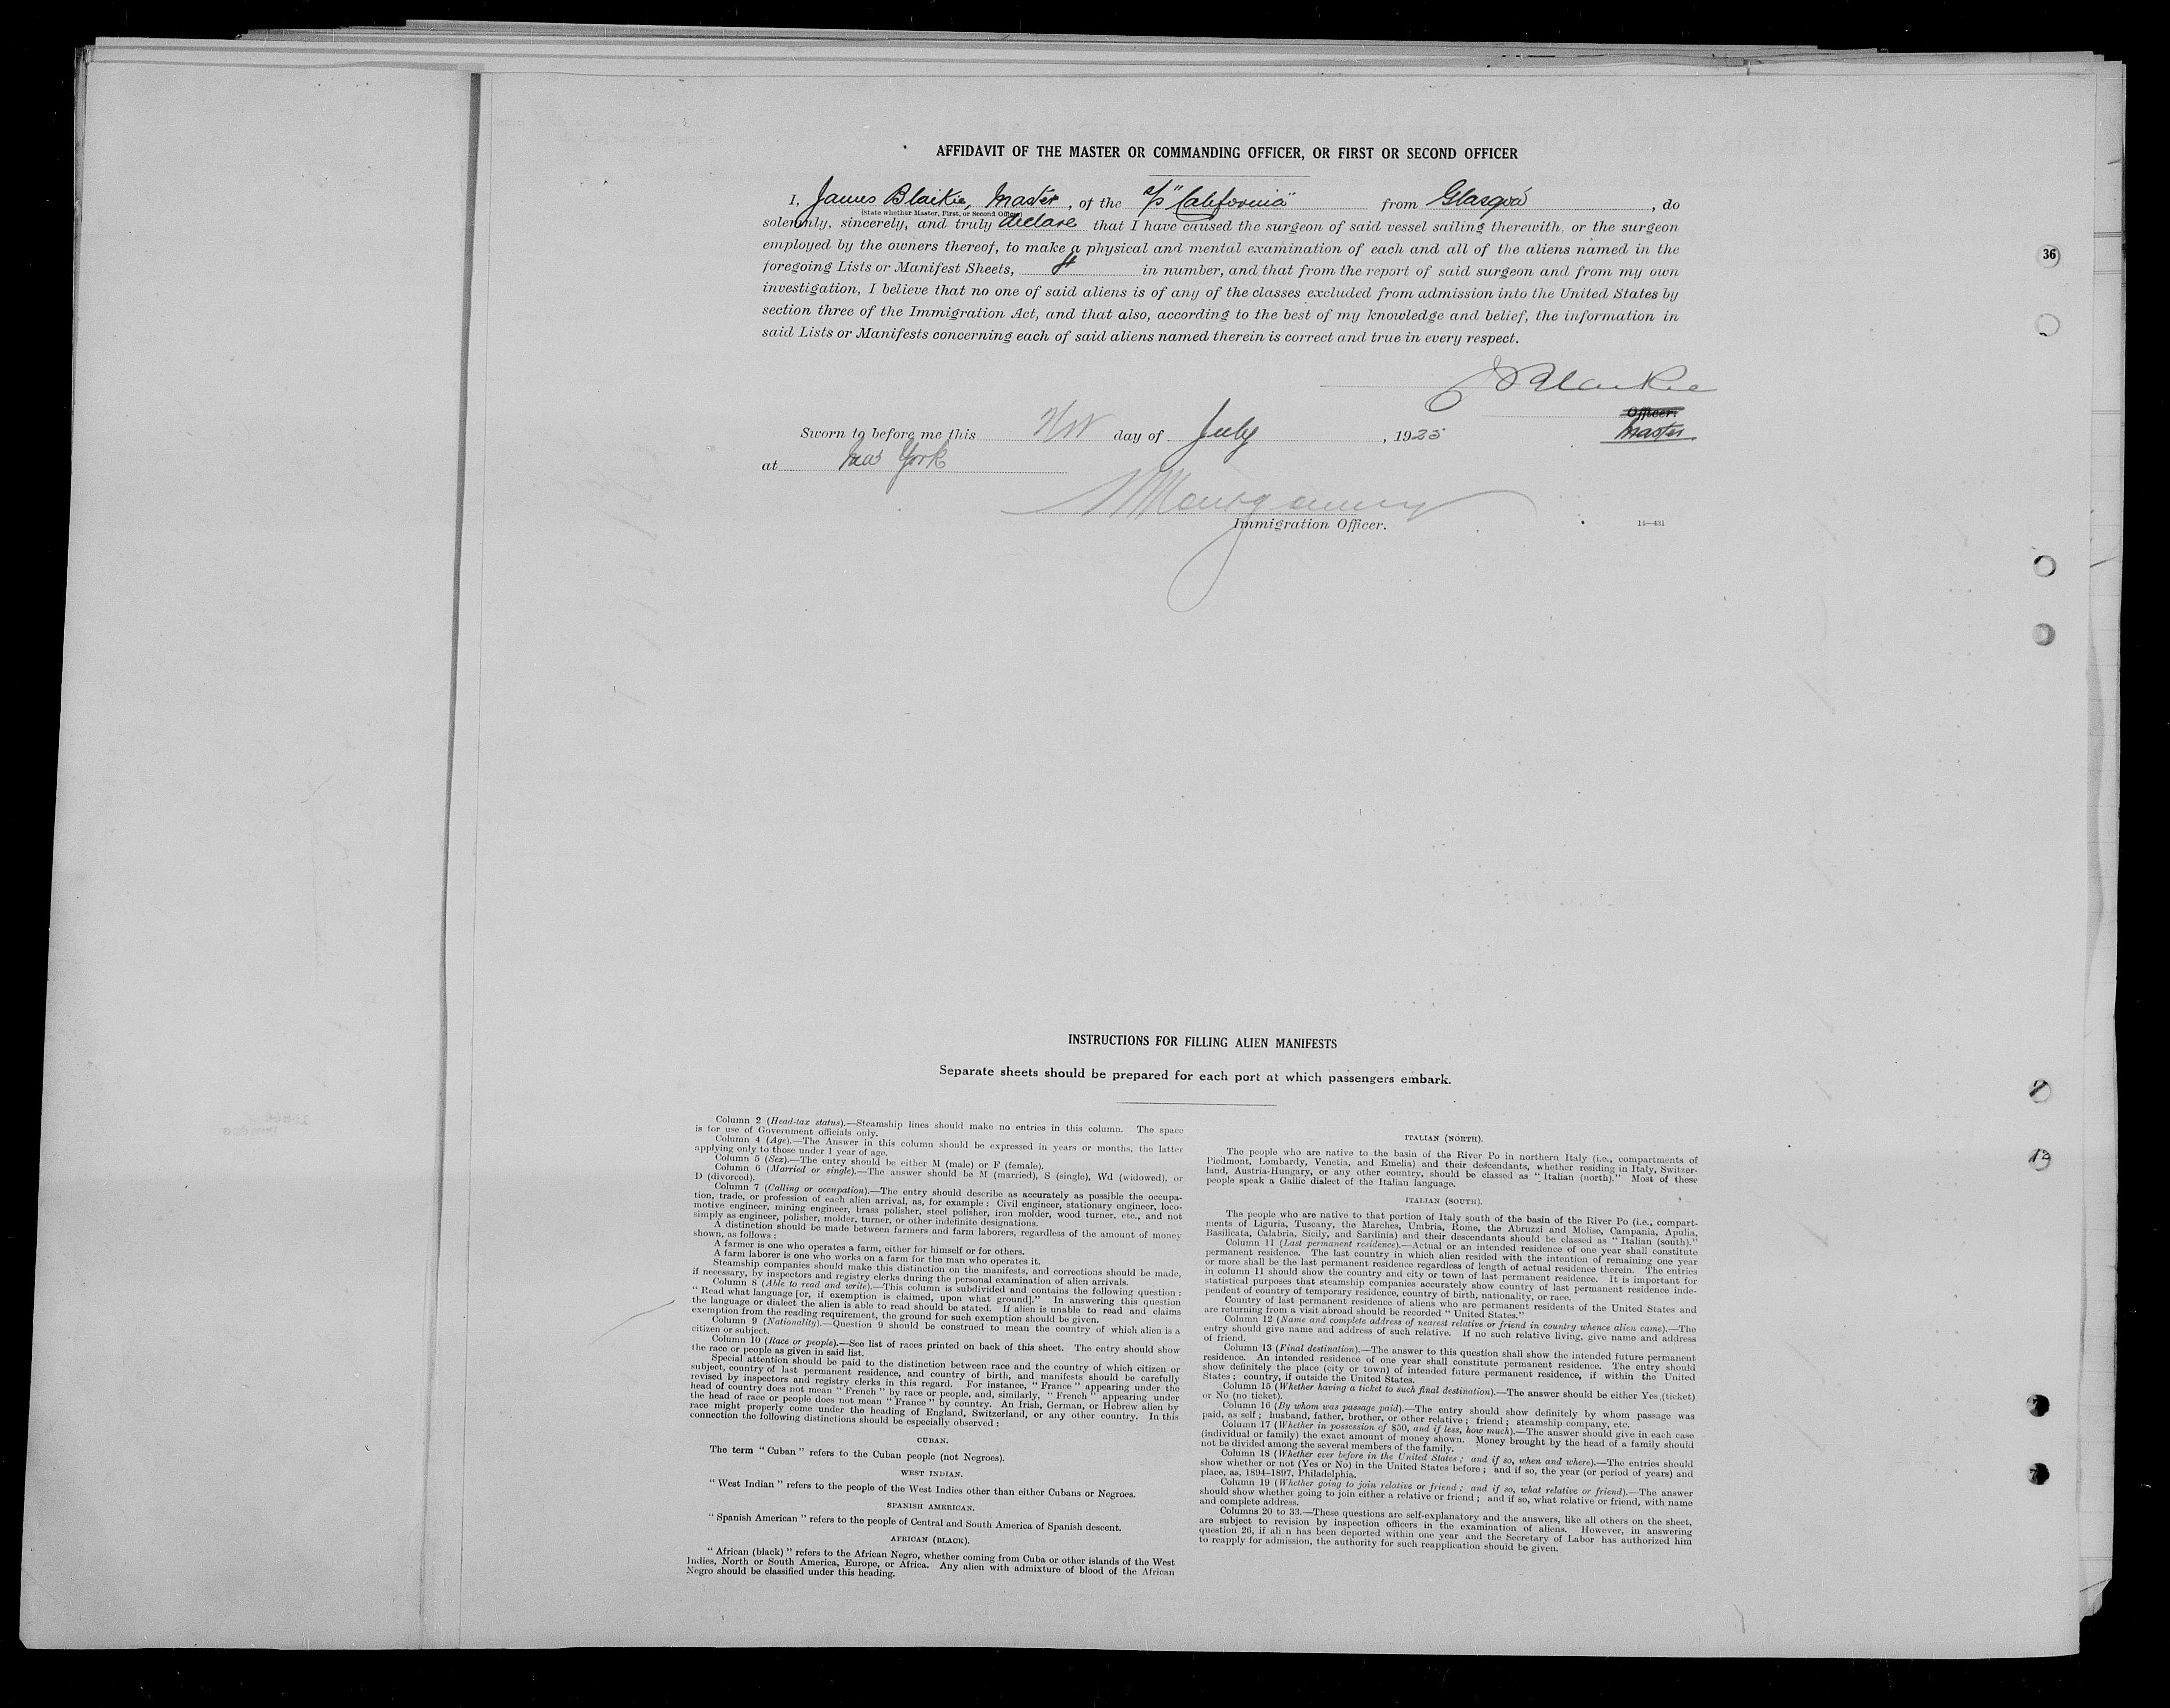 AFFIDAVIT OF THE MASTER OR COMMANDING OFFICER, OR FIRST OR SECOND OFFICER
I, James Blaikie, Master, of the s/s "California" from Glasgow, do
(State whether Master, First, or Second Officer)
solemnly, sincerely, and truly declare that I have caused the surgeon of said vessel sailing therewith, or the surgeon
employed by the owners thereof, to make a physical and mental examination of each and all of the aliens named in the
foregoing Lists or Manifest Sheets, in number, and that from the report of said surgeon and from my own
investigation, I believe that no one of said aliens is of any of the classes excluded from admission into the United States by
section three of the Immigration Act, and that also, according to the best of my knowledge and belief, the information in
said Lists or Manifests concerning each of said aliens named therein is correct and true in every respect.
J Blaikie
Officer.
Master
Sworn to before me this day of July, 1925
at New York
Montgomery
Immigration Officer.
14—431
36
INSTRUCTIONS FOR FILLING ALIEN MANIFESTS
Separate sheets should be prepared for each port at which passengers embark.
Column 2 (Head-tax status).—Steamship lines should make no entries in this column. The space
is for use of Government officials only.
Column 4 (Age).—The Answer in this column should be expressed in years or months, the latter
applying only to those under 1 year of age.
Column 5 (Sex).—The entry should be either M (male) or F (female).
Column 6 (Married or single).—The answer should be M (married), S (single), Wd (widowed), or
D (divorced).
Column 7 (Calling or occupation).—The entry should describe as accurately as possible the occupa-
tion, trade, or profession of each alien arrival, as, for example: Civil engineer, stationary engineer, loco-
motive engineer, mining engineer, brass polisher, steel polisher, iron molder, wood turner, etc., and not
simply as engineer, polisher, molder, turner, or other indefinite designations.
A distinction should be made between farmers and farm laborers, regardless of the amount of money
shown, as follows:
A farmer is one who operates a farm, either for himself or for others.
A farm laborer is one who works on a farm for the man who operates it.
Steamship companies should make this distinction on the manifests, and corrections should be made,
if necessary, by inspectors and registry clerks during the personal examination of alien arrivals.
Column 8 (Able to read and write).—This column is subdivided and contains the following question:
"Read what language [or, if exemption is claimed, upon what ground]." In answering this question
the language or dialect the alien is able to read should be stated. If alien is unable to read and claims
exemption from the reading requirement, the ground for such exemption should be given.
Column 9 (Nationality).—Question 9 should be construed to mean the country of which alien is a
citizen or subject.
Column 10 (Race or people).—See list of races printed on back of this sheet. The entry should show
the race or people as given in said list.
Special attention should be paid to the distinction between race and the country of which citizen or
subject, country of last permanent residence, and country of birth, and manifests should be carefully
revised by inspectors and registry clerks in this regard. For instance, "France" appearing under the
head of country does not mean "French" by race or people, and, similarly, "French" appearing under
the head of race or people does not mean "France" by country. An Irish, German, or Hebrew alien by
race might properly come under the heading of England, Switzerland, or any other country. In this
connection the following distinctions should be especially observed:
CUBAN.
The term "Cuban" refers to the Cuban people (not Negroes).
WEST INDIAN.
"West Indian" refers to the people of the West Indies other than either Cubans or Negroes.
SPANISH AMERICAN.
"Spanish American" refers to the people of Central and South America of Spanish descent.
AFRICAN (BLACK).
"African (black)" refers to the African Negro, whether coming from Cuba or other islands of the West
Indies, North or South America, Europe, or Africa. Any alien with admixture of blood of the African
Negro should be classified under this heading.
ITALIAN (NORTH).
The people who are native to the basin of the River Po in northern Italy (i.e., compartments of
Piedmont, Lombardy, Venetia, and Emelia) and their descendants, whether residing in Italy, Switzer-
land, Austria-Hungary, or any other country, should be classed as "Italian (north)." Most of these
people speak a Gallic dialect of the Italian language.
ITALIAN (SOUTH).
The people who are native to that portion of Italy south of the basin of the River Po (i.e., compart-
ments of Liguria, Tuscany, the Marches, Umbria, Rome, the Abruzzi and Molise, Campania, Apulia,
Basilicata, Calabria, Sicily, and Sardinia) and their descendants should be classed as "Italian (south)."
Column 11 (Last permanent residence).—Actual or an intended residence of one year shall constitute
permanent residence. The last country in which alien resided with the intention of remaining one year
or more shall be the last permanent residence regardless of length of actual residence therein. The entries
in column 11 should show the country and city or town of last permanent residence. It is important for
statistical purposes that steamship companies accurately show country of last permanent residence inde-
pendent of country of temporary residence, country of birth, nationality, or race.
Country of last permanent residence of aliens who are permanent residents of the United States and
are returning from a visit abroad should be recorded "United States."
Column 12 (Name and complete address of nearest relative or friend in country whence alien came).—The
entry should give name and address of such relative. If no such relative living, give name and address
of friend.
Column 13 (Final destination).—The answer to this question shall show the intended future permanent
residence. An intended residence of one year shall constitute permanent residence. The entry should
show definitely the place (city or town) of intended future permanent residence, if within the United
States; country, if outside the United States.
Column 15 (Whether having a ticket to such final destination).—The answer should be either Yes (ticket)
or No (no ticket).
Column 16 (By whom was passage paid).—The entry should show definitely by whom passage was
paid, as self; husband, father, brother, or other relative; friend; steamship company, etc.
Column 17 (Whether in possession of $50, and if less, how much).—The answer should give in each case
(individual or family) the exact amount of money shown. Money brought by the head of a family should
not be divided among the several members of the family.
Column 18 (Whether ever before in the United States; and if so, when and where).—The entries should
show whether or not (Yes or No) in the United States before; and if so, the year (or period of years) and
place, as, 1894-1897, Philadelphia.
Column 19 (Whether going to join relative or friend; and if so, what relative or friend).—The answer
should show whether going to join either a relative or friend; and if so, what relative or friend, with name
and complete address.
Columns 20 to 33.—These questions are self-explanatory and the answers, like all others on the sheet,
are subject to revision by inspection officers in the examination of aliens. However, in answering
question 26, if ali n has been deported within one year and the Secretary of Labor has authorized him
to reapply for admission, the authority for such reapplication should be given.